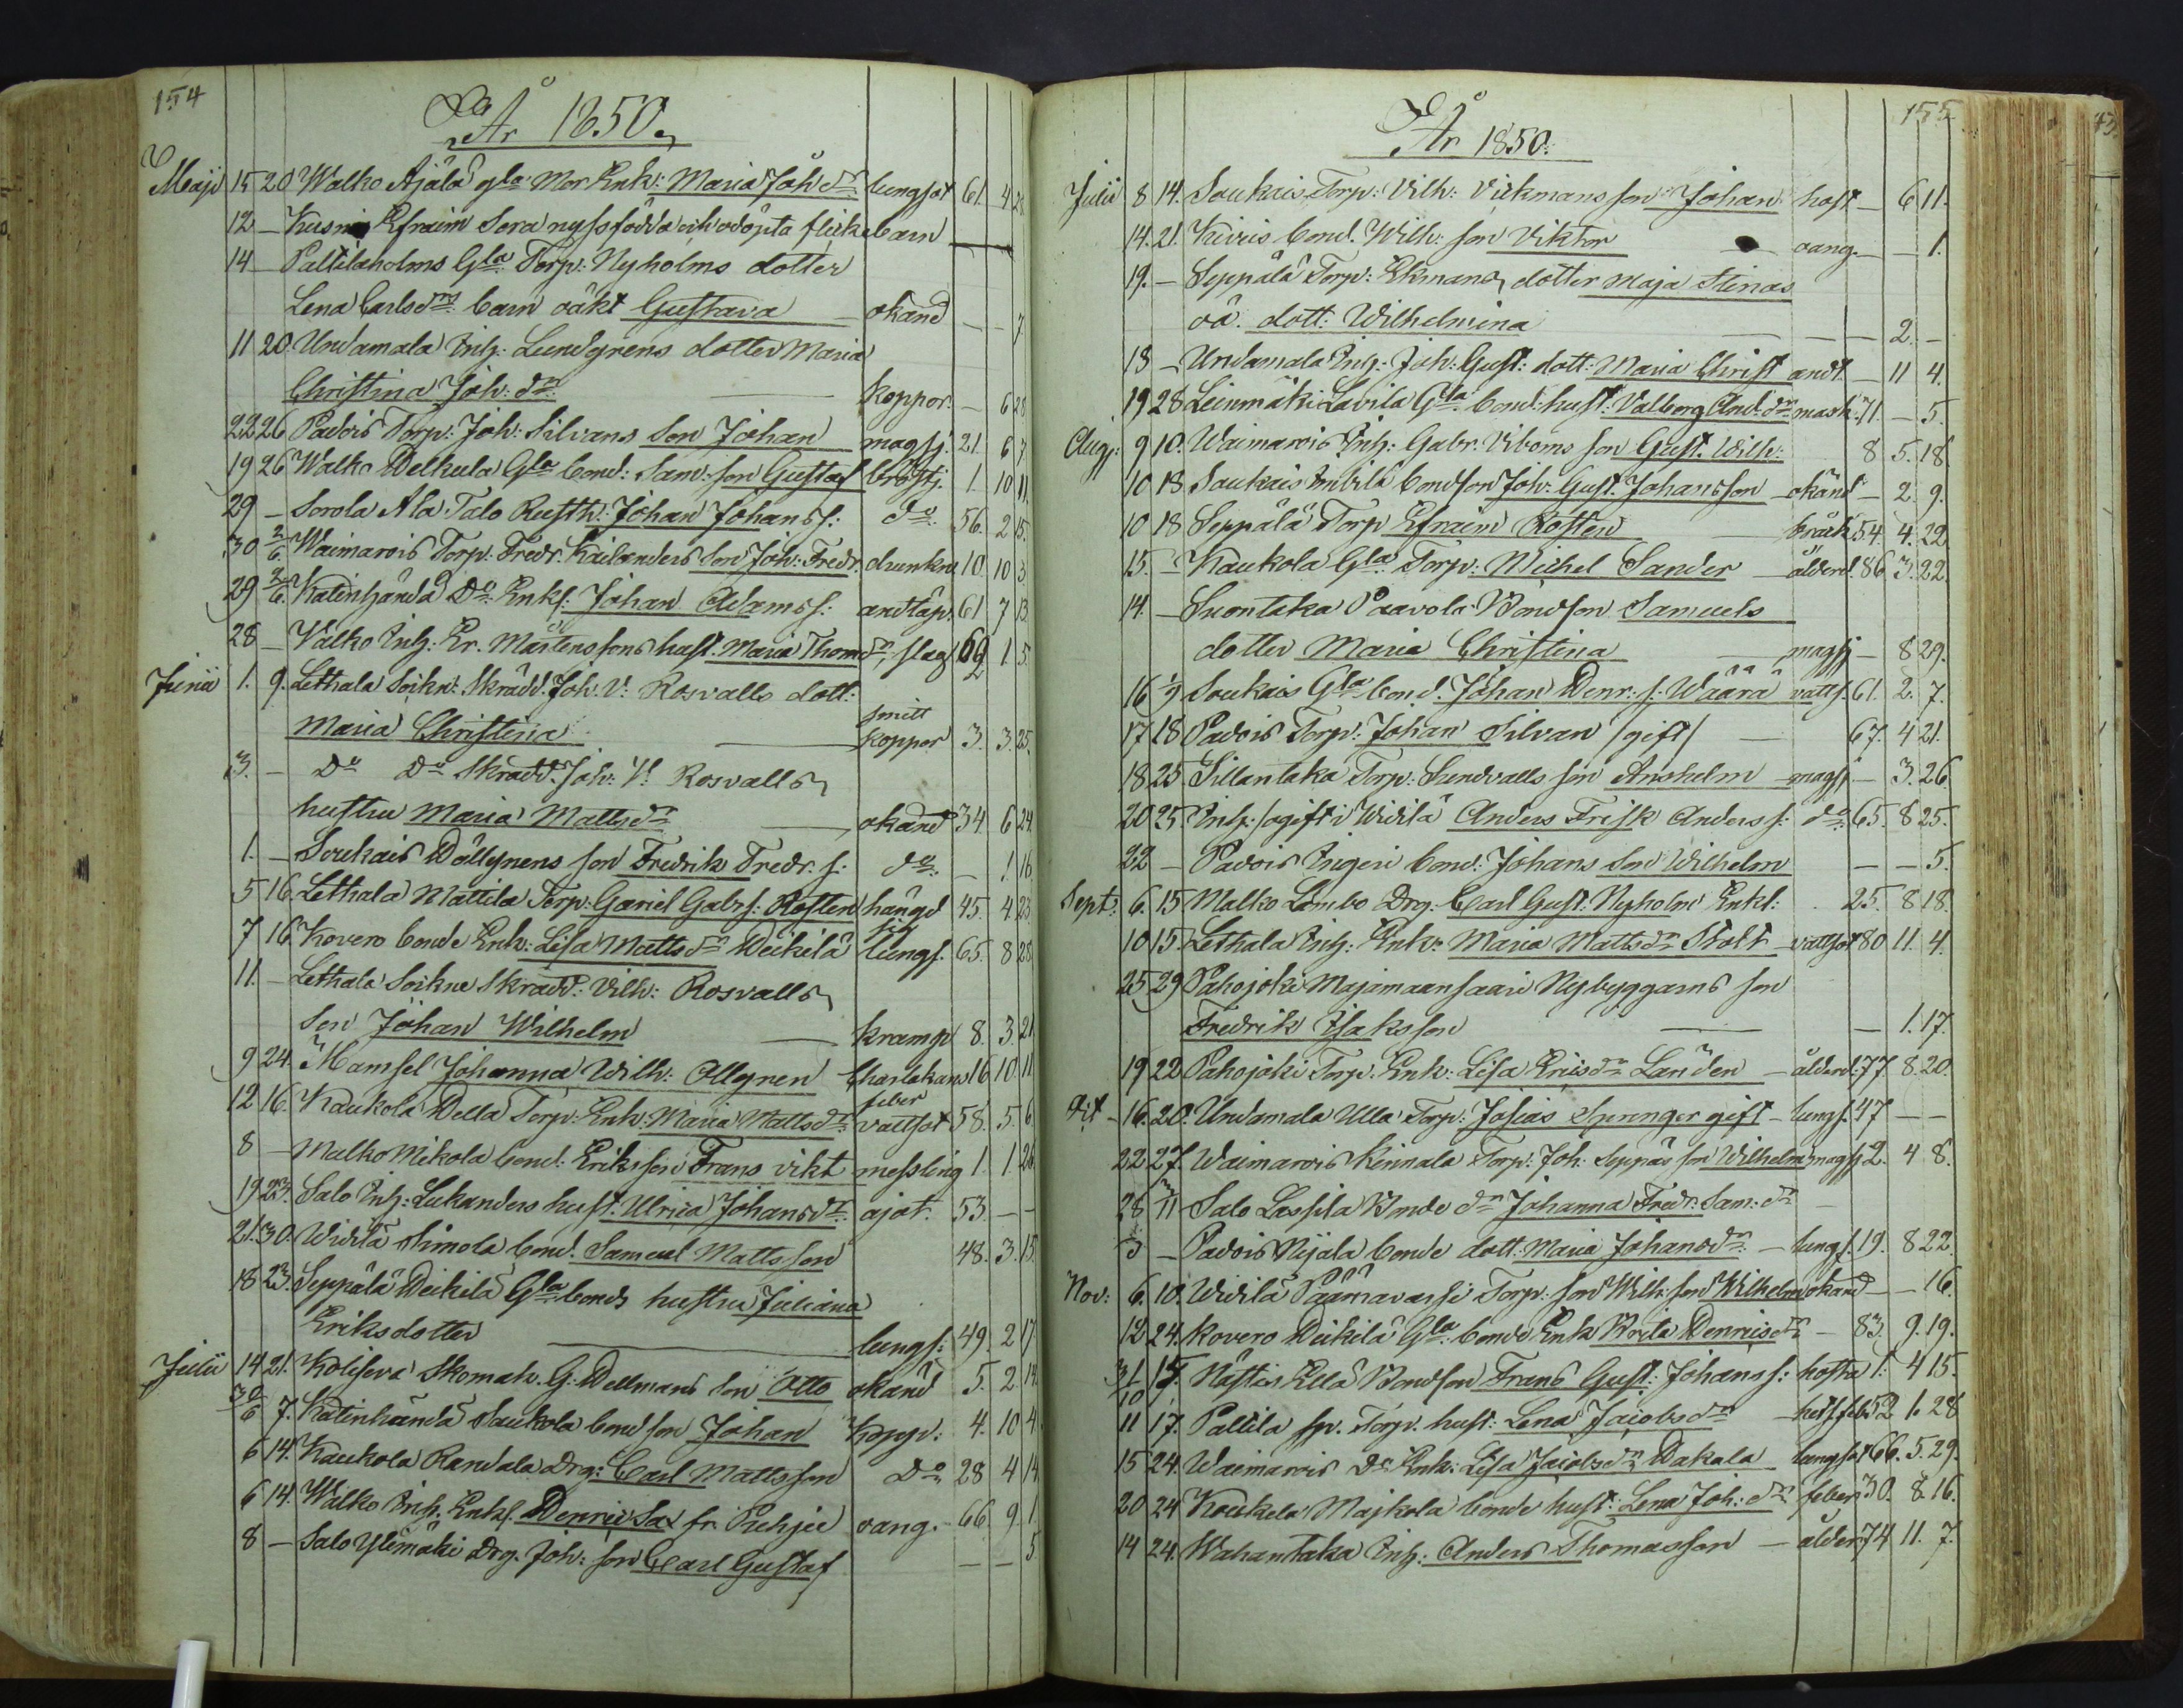 154
År 1850.
Maji 15 20 Walko Ajälä gla Mor Enk: Maria Joh dr lungsot 61. 4 28
12 — Kusni Efraim Sora nyssfödda och odöpta flickebarn
14 — Paltilaholms Gla Torp: Nyholms dotter
Lena Carlsdrs barn oäkt Gustava okänd — — 7
11 20. Undamala Inh: Lundgrens dotter Maria
Christina Joh: dr koppor — 6 28
22 26 Padois Torp: Joh: Silvans Son Johan magsj. 21. 6 7
19 26 Walko Welkula Gla bond: Sam: son Gustaf bröstsj. 1. 10 11.
29 — Sorola Ala Talo Rusth: Johan Johanss: do 56. 2 15.
30 2/6 Waimarois Torp. Fredr. Kailanders Son Joh: Fredr. drunkn 10. 10 3.
29 2/6. Katinhändä Do Enkl: Johan Adamss: andtäp: 61 7 13
28 — Walko Inh: Er. Mårtenssons hust. Maria Thom dr, slag 69 1. 5.
Junii 1. 9. Lethala Soikn: Skrädd. Joh. V: Rosvalls dott:
Maria Christina smitt koppor 3. 3. 25.
3. — Do Do Skrädd. Joh: V: Rosvalls
hustru Maria Mattsdr okänd 34. 6 24.
1. — Soukais Dällgrens son Fredrik Fredr. s: do — 1 16
5 16. Lethala Mattila Torp: Gariel Gabrs: Rosten hängd sig 45. 4 23
7 16 Kovero bonde Enk: Lisa Mattsdr Deikilä lungs. 65. 8 28.
11. — Lethala Soikne Skrädd: Vilh: Rosvalls
Son Johan Wilhelm kramp 8. 3. 21
9 24. Mamsel Johanna Wilh: Ollgren Charlakans feber 16 10 11
12 16. Kaukola Della Torp: Enk: Maria Mattsdr vattsot 58. 5. 6
8 — Malko Mikola bond: Eriks son Frans Vikt messling 1. 1. 26
19 23. Salo Inh: Lukanders hust: Ulrica Johansdr ajot. 53. — —
21. 30. Widilä Simola bond. Samuel Mattsson 48. 3. 15.
18 23. Seppälä Deikilä Gla bonds hustru Juliana
Eriksdotter lungs: 49. 2 17
Julii 14 21. Kolisevä Skomak. G: Dellmans Son Otto okänd 5. 2 14.
30/6 7. Katinhändä Saukola bondson Johan Kopp: 4. 10 4
6 14. Kaukola Randala Drg: Carl Mattsson Do 28 4 14
6 14. Walko Inh. Enkl. Denric Sax fr. Puhjee oang. 66. 9. 1.
8 — Salo Ylimäki Drg. Joh: son Carl Gustaf — — 5.
155
År 1850.
Julii 8 14. Soukais Torp: Vilh: Vickmans son Johan host — 6 11.
14. 21. Kivis bond. Wilh: son Viktor oang. — — 1.
19. — Seppälä Torp: Ekmans dotter Maja Stinas
oä. dott: Wilhelmina — — 2. —
18 — Undamala Inh: Joh: Gust: dott: Maria Christ andt — 11 4.
19 28 Leinmäki Lavila Gla bond: hust: Valborg And: dr mask 71. — 5.
Aug: 9 10. Waimarois Inh: Gabr. Viboms son Gust. Wilh: 8 5. 18.
10 18 Saukais Imbilä bondson Joh: Gust. Johansson okänd — 2. 9.
10 18 Seppälä Torp Efraim Rosten kräft 54. 4. 22.
15. — Kaukola Gla Torp: Michel Sander ålderd. 86 3. 22.
14. — Suontaka Paavola Bondson Samuels
dotter Maria Christina magsj — 8 29.
16 1/9 Soukais Gla bond. Johan Denr: s: Wäärä vatts. 61. 2. 7.
17 18 Padois Torp. Johan Silvan /gift/ 67. 4 21.
18 25 Sillantaka Torp: Sundvalls son Anshelm magsj. — 3. 26.
20 25. Inh: /ogift i Widilä Anders Frisk Anderss: do 65. 8 25.
22 — Padois Ingeri bond: Johans Son Wilhelm — — 5.
Sept: 6. 15 Malko Lambo Drg. Carl Gust: Nyholm Enkl: 25. 8 18.
10 15 Lethala Inh: Enk: Maria Mattsdr Stolt vattsot 80 11. 4.
25 29 Pahojoki Majamaansaari Nybyggarns son
Fredrik Isaksson — 1. 17.
19 22 Pahojoki Torp. Enk: Lisa Ericsdr Landen ålderd. 77. 8. 20.
Oct — 16. 20. Undamala Ulla Torp: Josias Sprenger gift — lungs. 47 — —
22 27. Waimarois Kinnala Torp: Joh: Seppäs son Wilhelm magsj 2. 4 8.
28 3/11 Salo Lassila Bonde dr Johanna Fredr: Sam: dr
— Padois Nijala bonde dott: Maria Johansdr — lungs. 19. 8 22.
Nov: 6. 10. Widilä Päämavarsi Torp: son Wilh: son Wilhelm okänd — — 16.
12 24. Kovero Deikilä Gla bonde Enk Brita Denricsdr — 83. 9. 19.
31/10 17. Nästis Ellä Bondson Frans Gust: Johanss: hosta 1. 4 15.
11 17. Paltila sp. Torp. hust: Lena Jacobsdr hets feb 52 1. 28
15 24. Waimarois Do Enk: Lisa Jacobsdr Dakala lungsot 66. 5. 29.
20 24 Koukela Majkola bonde hust: Lena Joh: dr feber 30. 8. 16.
14 24. Wahantaka Inh: Anders Thomasson — ålder 74 11. 7.